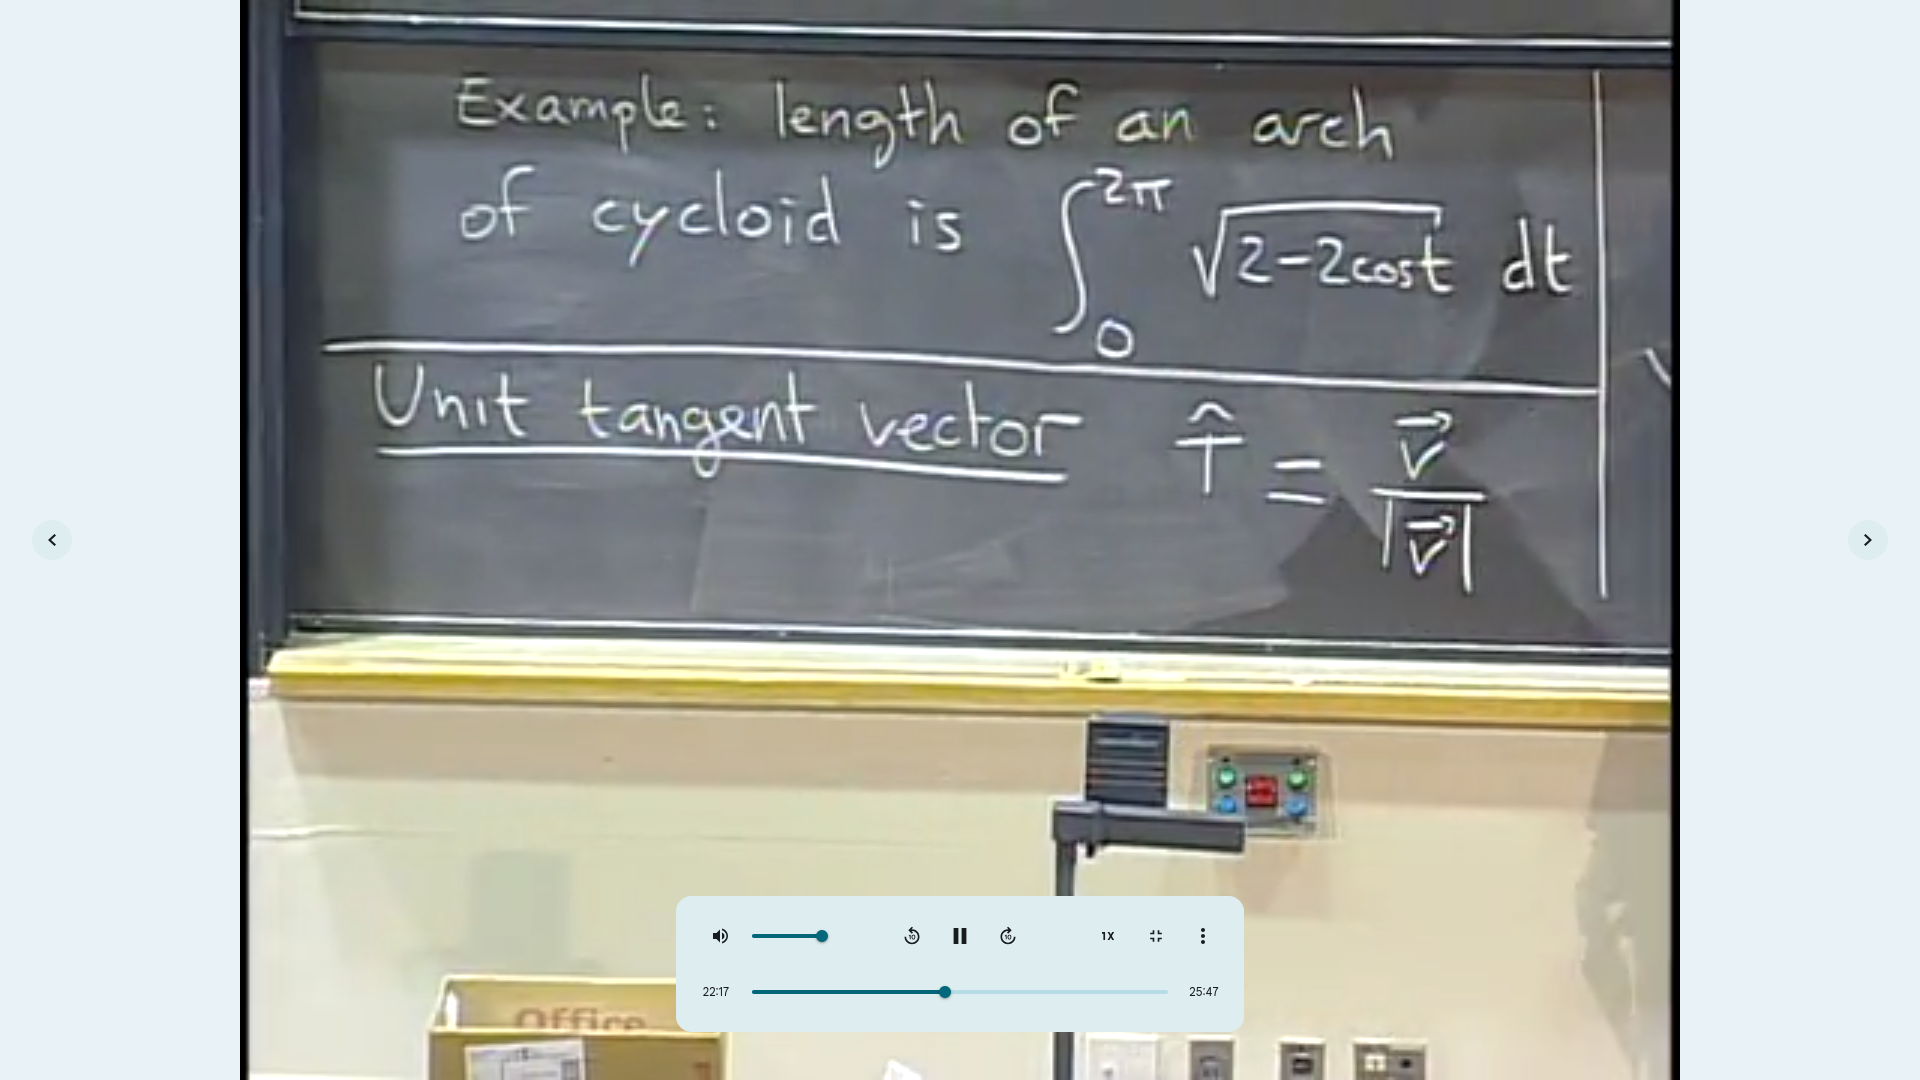 Example: length of an arch
of cycloid is ∫₀^{2π} √(2-2cost) dt
Unit tangent vector T̂ = v⃗ / |v⃗|
Office
10
10
1X
22:17
25:47